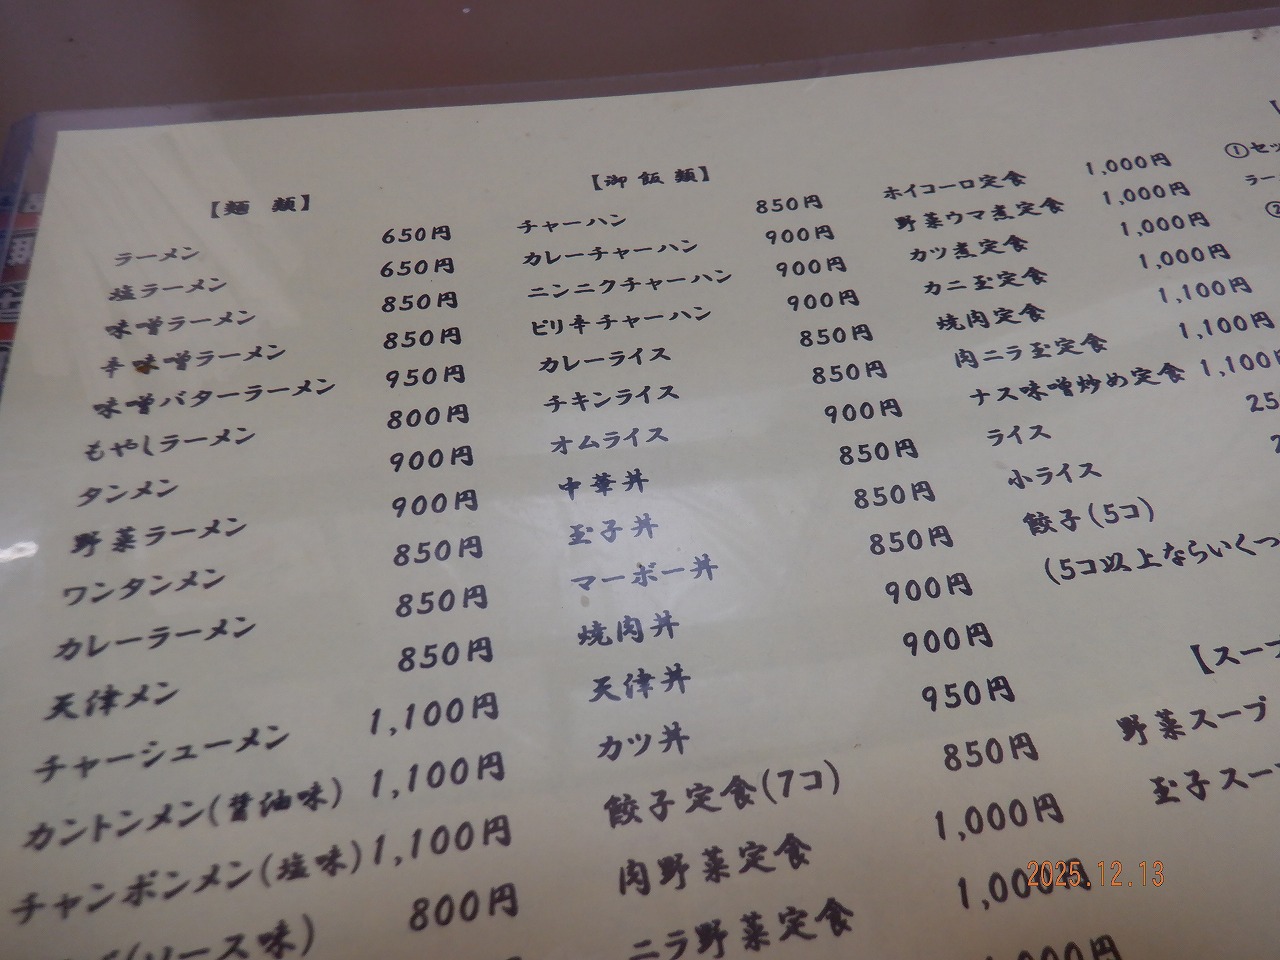 【麺 類】
ラーメン 650円
塩ラーメン 650円
味噌ラーメン 850円
辛味噌ラーメン 850円
味噌バターラーメン 950円
もやしラーメン 800円
タンメン 900円
野菜ラーメン 900円
ワンタンメン 850円
カレーラーメン 850円
天津メン 850円
チャーシューメン 1,100円
カントンメン(醤油味) 1,100円
チャンポンメン(塩味) 1,100円
(ソース味) 800円
【御 飯 類】
チャーハン 850円
カレーチャーハン 900円
ニンニクチャーハン 900円
ピリ辛チャーハン 900円
カレーライス 850円
チキンライス 850円
オムライス 900円
中華丼 850円
玉子丼 850円
マーボー丼 850円
焼肉丼 900円
天津丼 900円
カツ丼 950円
餃子定食(7コ) 850円
肉野菜定食 1,000円
ニラ野菜定食 1,000円
ホイコーロ定食 1,000円
野菜ウマ煮定食 1,000円
カツ煮定食 1,000円
カニ玉定食 1,000円
焼肉定食 1,100円
肉ニラ玉定食 1,100円
ナス味噌炒め定食 1,100円
ライス 25
小ライス
餃子(5コ)
(5コ以上ならいくつ
【スープ
野菜スープ
玉子スー
①セッ
ラー
②
2025.12.13